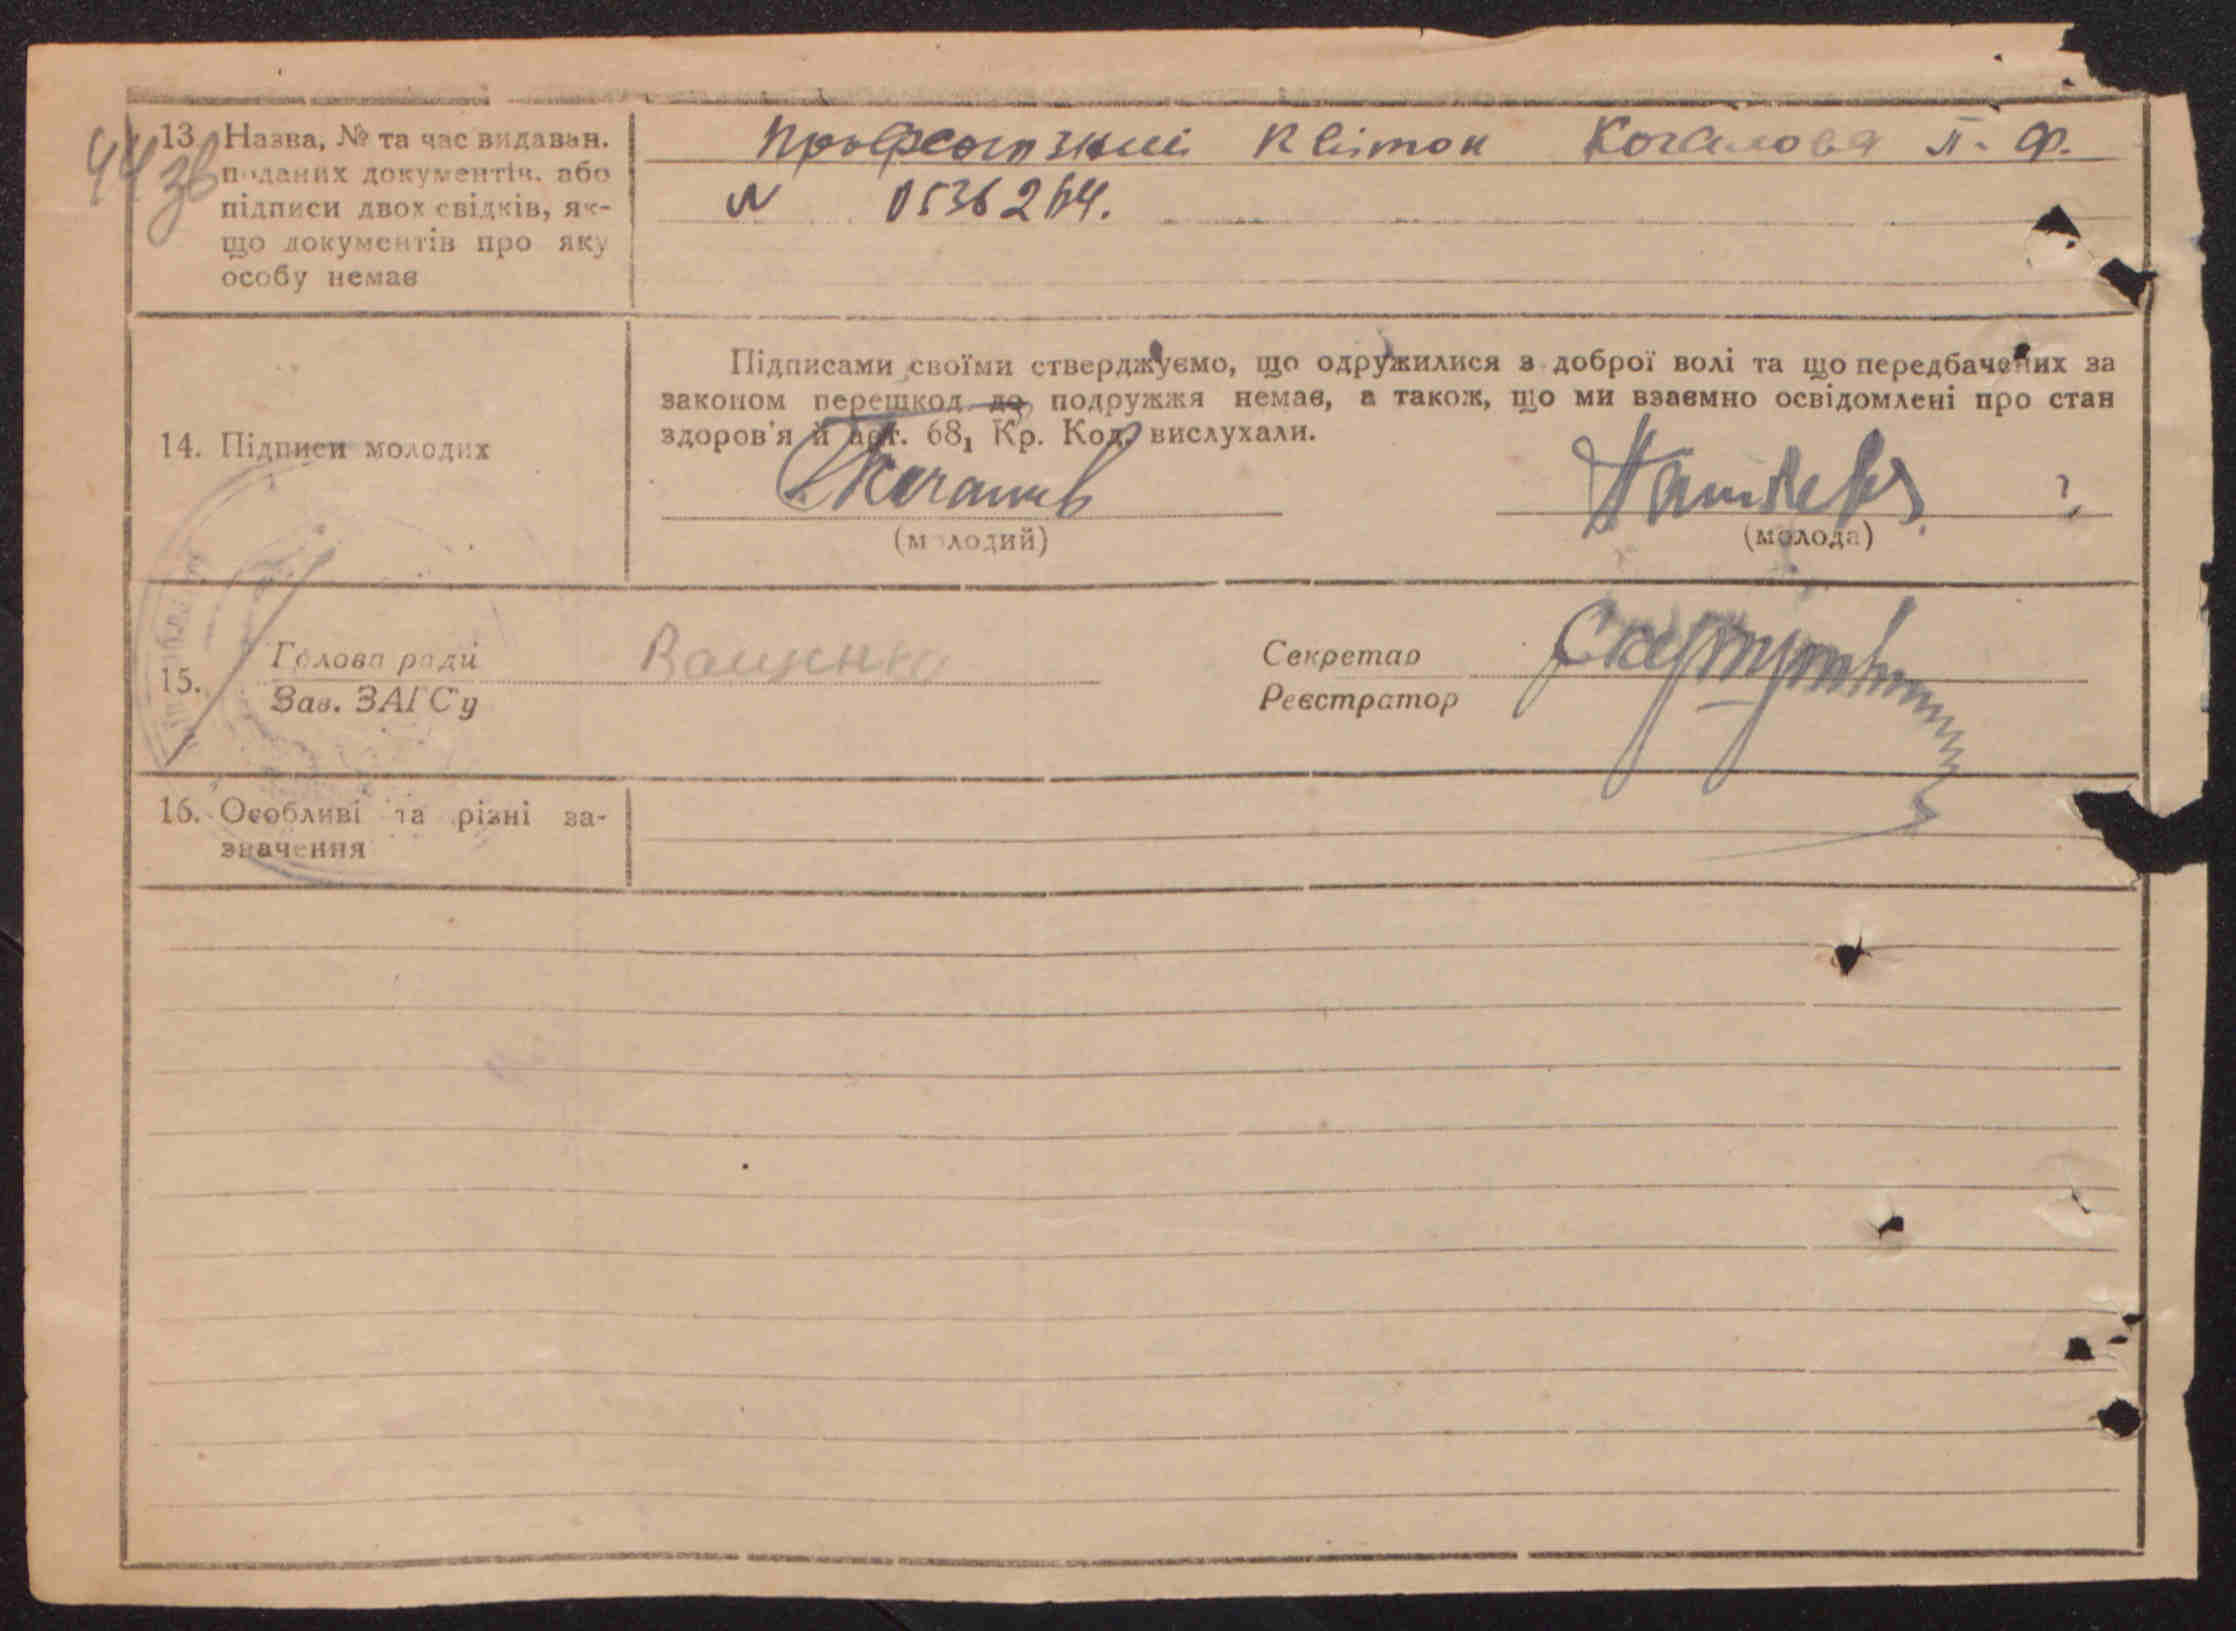 13. Назва, № та час видаван.
поданих документів. або
підписи двох свідків, як-
що документів про яку
особу немає
квіток П. Ф.
N
14. Підписи молодих
Підписами своїми стверджуємо, що одружилися з доброї волі та що передбачених за
законом перешкод до подружжя немає, а також, що ми взаємно освідомлені про стан
здоров'я й арт. 68₁ Кр. Код. вислухали.
(молодий)
(молода)
15. Голова ради
Зав. ЗАГСу
Секретар
Реєстратор
16. Особливі та різні за-
значення